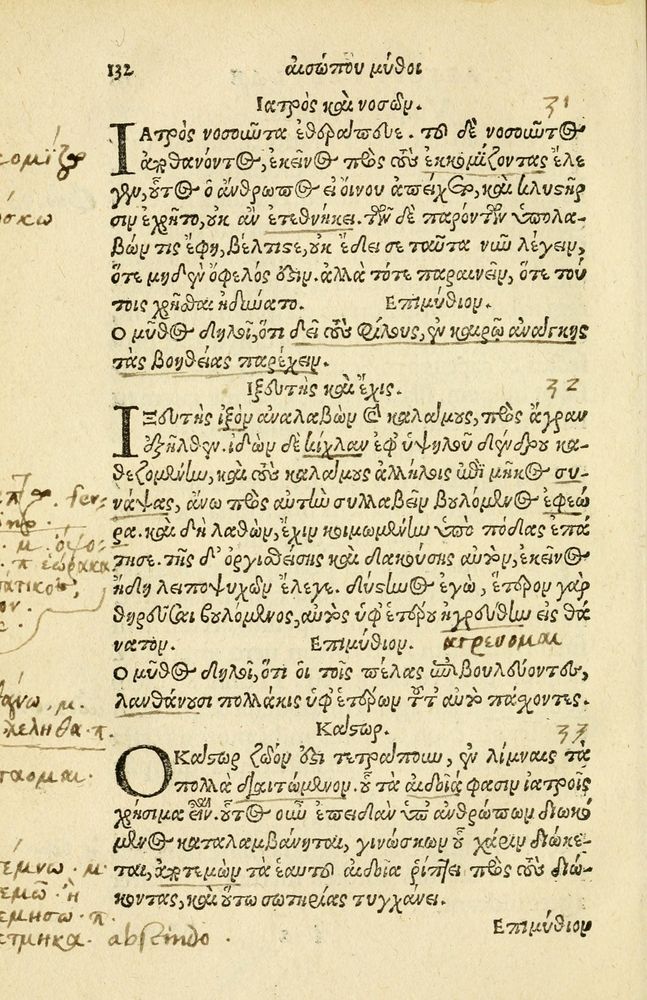 132 αἰσώπου μῦθοι
Ἰατρὸς καὶ νοσῶν. 31
ΙΑτρὸς νοσοῦντα ἐθεράπευε. τοῦ δὲ νοσοῦντος
ἀποθανόντος, ἐκεῖνος πρὸς τοὺς ἐκκομίζοντας ἔλε
γεν, οὗτος ὁ ἄνθρωπος εἰ οἴνου ἀπείχετο, καὶ κλυστῆρ
σιν ἐχρῆτο, οὐκ ἂν ἐτεθνήκει. τῶν δὲ παρόντων ὑπολα-
βών τις ἔφη, βέλτιστε, οὐκ ἔδει σε ταῦτα νῦν λέγειν,
ὅτε μηδὲν ὄφελός ἐστιν. ἀλλὰ τότε παραινεῖν, ὅτε τού
τοις χρῆσθαι ἠδύνατο. Ἐπιμύθιον.
Ο μῦθος δηλοῖ, ὅτι δεῖ τοὺς φίλους, ἐν καιρῷ ἀνάγκης
τὰς βοηθείας παρέχειν.
Ἰξευτὴς καὶ ἔχις. 32
ΙΞευτὴς ἰξὸν ἀναλαβὼν καὶ καλάμους, πρὸς ἄγραν
ἐξῆλθεν. ἰδὼν δὲ κίχλαν ἐφ' ὑψηλοῦ δένδρου κα-
θεζομένην, καὶ τοὺς καλάμους ἀλλήλοις ἐπὶ μῆκος συ-
νάψας, ἄνω πρὸς αὐτὴν συλλαβεῖν βουλόμενος ἐφεώ
ρα. καὶ δὴ λαθὼν, ἔχιν κοιμωμένην ὑπὸ πόδας ἐπά
τησε. τῆς δ' ὀργισθείσης καὶ δακούσης αὐτὸν, ἐκεῖνος
ἤδη λειποψυχῶν ἔλεγε. δύστηνος ἐγώ, ἕτερον γὰρ
θηρεῦσαι βουλόμενος, αὐτὸς ὑφ' ἑτέρου ἠγρεύθην εἰς θά
νατον. Ἐπιμύθιον. αγρευομαι
Ο μῦθος δηλοῖ, ὅτι οἱ τοῖς πέλας ἐπιβουλεύοντες,
λανθάνουσι πολλάκις ὑφ' ἑτέρων τοῦτ' αὐτὸ πάσχοντες.
Κάστωρ. 33
ΟΚάστωρ ζῶόν ἐστι τετράπουν, ἐν λίμναις τὰ
πολλὰ διαιτώμενον. οὗ τὰ αἰδοῖά φασιν ἰατροῖς
χρήσιμα εἶναι. οὗτος οὖν ἐπειδὰν ὑπ' ἀνθρώπων διωκό
μενος καταλαμβάνηται, γινώσκων οὗ χάριν διώκε-
ται, ἀποτεμὼν τὰ ἑαυτοῦ αἰδοῖα ῥίπτει πρὸς τοὺς διώ-
κοντας, καὶ οὕτω σωτηρίας τυγχάνει.
Ἐπιμύθιον
ομίζω
σκω
εώρακα
λεληθα. π.
εμνω. μ.
εμῶ. ἢ
εμησω. π.
ετμηκα. abscindo.